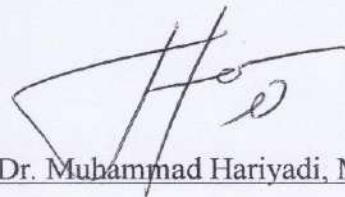 Dr. Muhammad Hariyadi, M